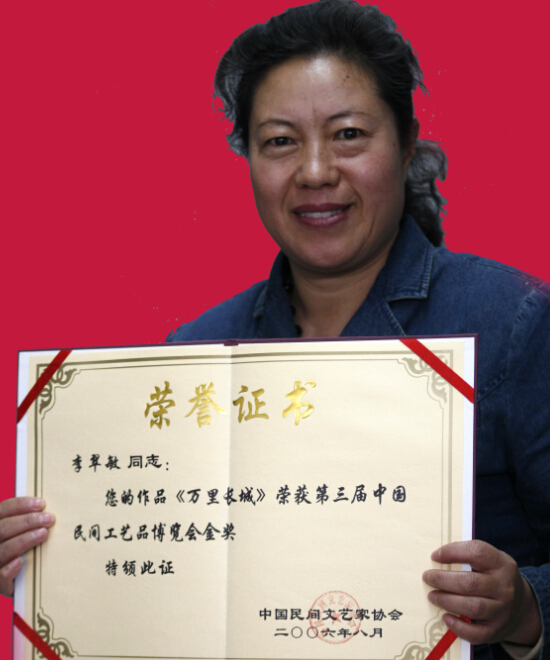 荣誉证书
李翠敏 同志：
您的作品《万里长城》荣获第三届中国
民间工艺品博览会金奖
特颁此证
中国民间文艺家协会
二〇〇六年八月